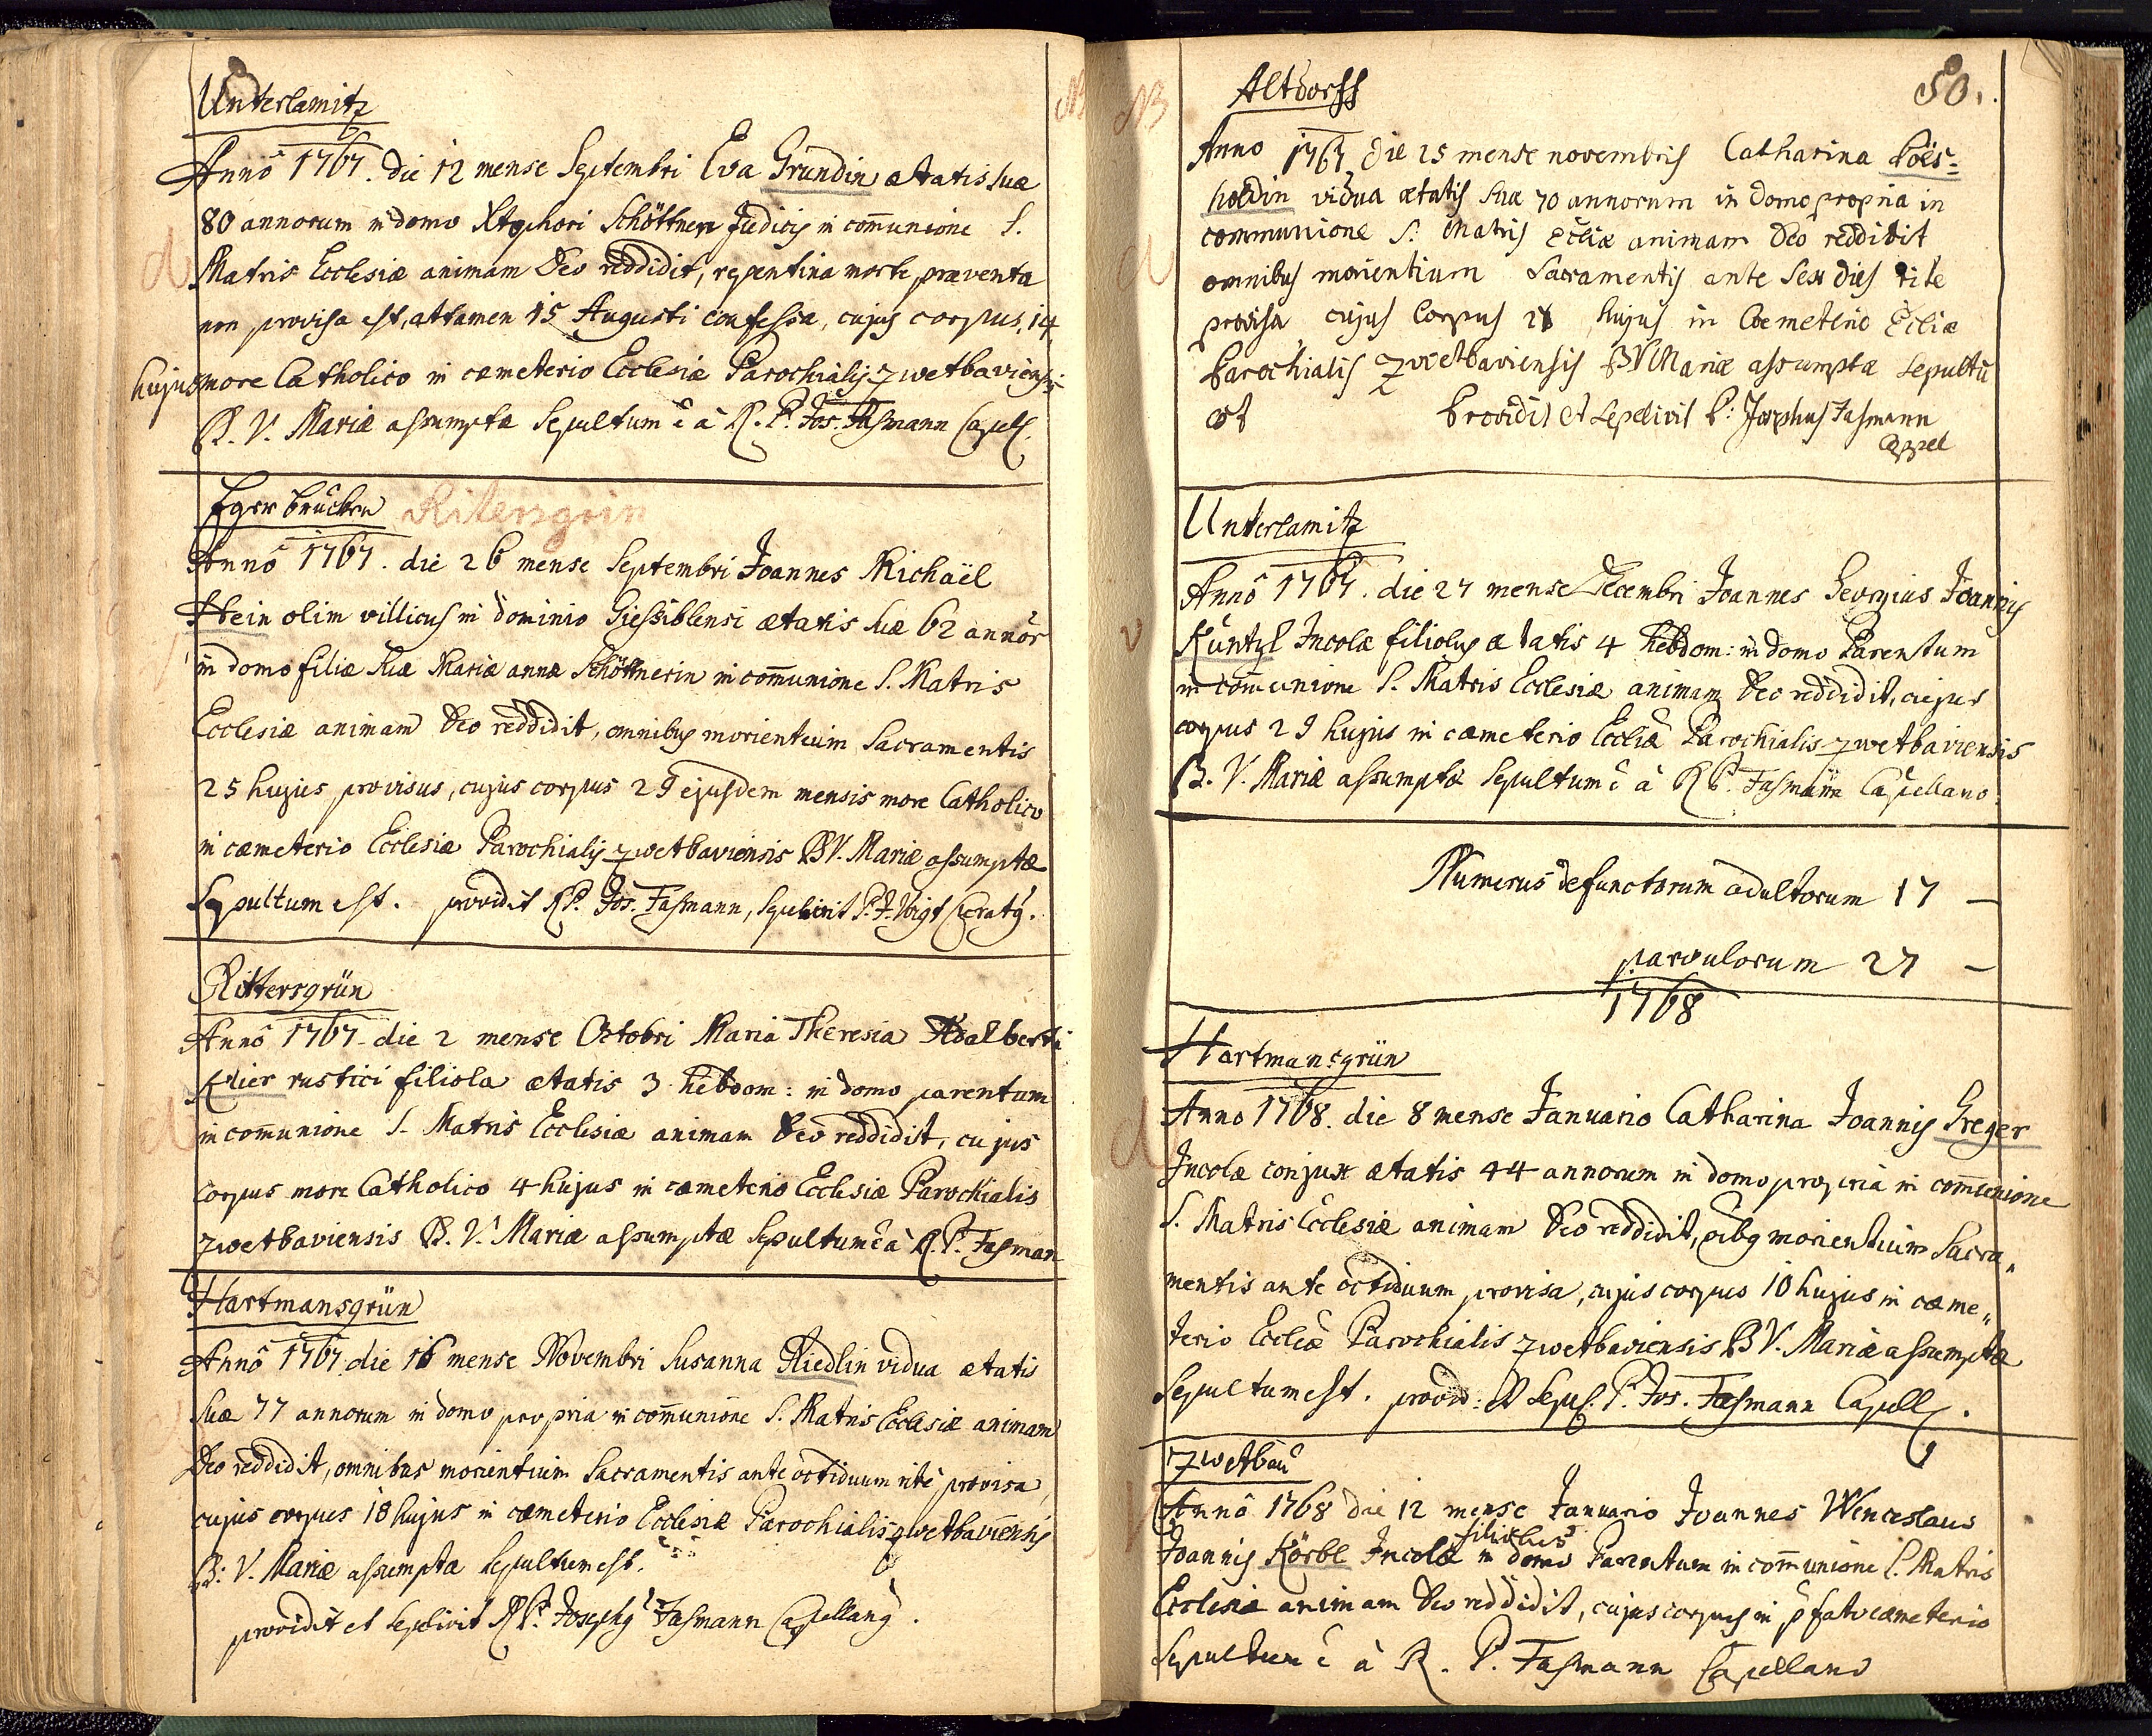 Unterlamitz
Annô 1767. die 12 mense Septembri Eva Gründin ætatis suæ
80 annorum in domo Schöttner Judicis in com̄unione S.
Matris Ecclesiæ animam Deo reddidit, repentina morte præventa
non provisa est, attamen 15 Augusti confessa, cujus corpus, 14
hujus more Catholico in cæmeterio Ecclesiæ Parochialis zwetbaviensis
B. V. Mariæ assumptæ Sepultum ē à R. P. Jos. Fasmann Capell.
Egerbrücken Ritersgrin
Annô 1767. die 26 mense Septembri Joannes Michaël
Hein olim villicus in dominio Giessiblensi ætatis suæ 62 annor
in domo filiæ suæ Mariæ annæ Schöttnerin in com̄unione S. Matris
Ecclesiæ animam Deo reddidit, omnibus morientium Sacramentis
25 hujus provisus, cujus corpus 29 ejusdem mensis more Catholico
in cæmeterio Ecclesiæ Parochialis zwetbaviensis BV. Mariæ assumptæ
Sepultum est. providit R.P. Jos. Fasmann, Sepelivit P. J. Voigt Curatus.
Rittersgrün
Annô 1767 die 2 mense Octobri Maria Theresia Adalberti
rustici filiola ætatis 3 hebdom: in domo parentum
in com̄unione S. Matris Ecclesiæ animam Deo reddidit, cujus
corpus more Catholico 4 hujus in cæmeterio Ecclesiæ Parochialis
zwetbaviensis B. V. Mariæ assumptæ Sepultum ē à R. P. Fasman
Hartmansgrün
Annô 1767 die 16 mense Novembri Susanna Riedlin vidua ætatis
suæ 77 annorum in domo propria in com̄unione S. Matris Ecclesiæ animam
Deo reddidit, omnibus morientium Sacramentis ante octiduum rite provisa,
cujus corpus 18 hujus in cæmeterio Ecclesiæ Parochialis zwetbaviensis
B. V. Mariæ assumpta Sepultum est.
providit et Sepelivit R.P. Josephus Fasmann Capellanus.
NB
Altdorff 80.
Anno 1767 die 25 mense novembris Catharina Pöis=
holdin vidua ætatis suæ 70 annorum in domo propria in
communione S. Matris Eccliæ animam Deo reddidit
omnibus morientium Sacramentis ante Sex dies rite
provisa cujus Corpus hujus in Coemeterio Eccliæ
Parochialis Zwetbaviensis BVMariæ assumptæ Sepultū
est Providit et Sepelivit P: Josephus Fasmann
Cappel
Unterlamitz
Annô 1767. die 27 mense Decembri Joannes Georgius Joannis
Küntzl Incolæ filiolus ætatis 4 hebdom: in domo Parentum
in com̄unione S. Matris Ecclesiæ animam Deo reddidit, cujus
corpus 29 hujus in cæmeterio Eccliæ Parochialis zwetbaviensis
B. V. Mariæ assumptæ Sepultum ē à R P. Fasmann Capellano.
Numerus defunctorum adultorum 17 –
parvulorum 27 –
1768
Hartmansgrün
Anno 1768. die 8 mense Januario Catharina Joannis Greger
Incolæ conjux ætatis 44 annorum in domo propria in com̄unione
S. Matris Ecclesiæ animam Deo reddidit, oibus morientium Sacra„
mentis ante octiduum provisa, cujus corpus 10 hujus in cæme„
terio Eccliæ Parochialis zwetbaviensis BV. Mariæ assumptæ
Sepultum est. provid: & Sepel. P. Jos. Fasmann Capell.
Zwetbau
Annô 1768 die 12 mense Januario Joannes Wenceslaus
Joannis Körbl Incolæ filiolus in domo Parentum in com̄unione S. Matris
Ecclesiæ animam Deo reddidit, cujus corpus in p̄fato cæmeterio
Sepultum ē à R. P. Fasmann Capellano